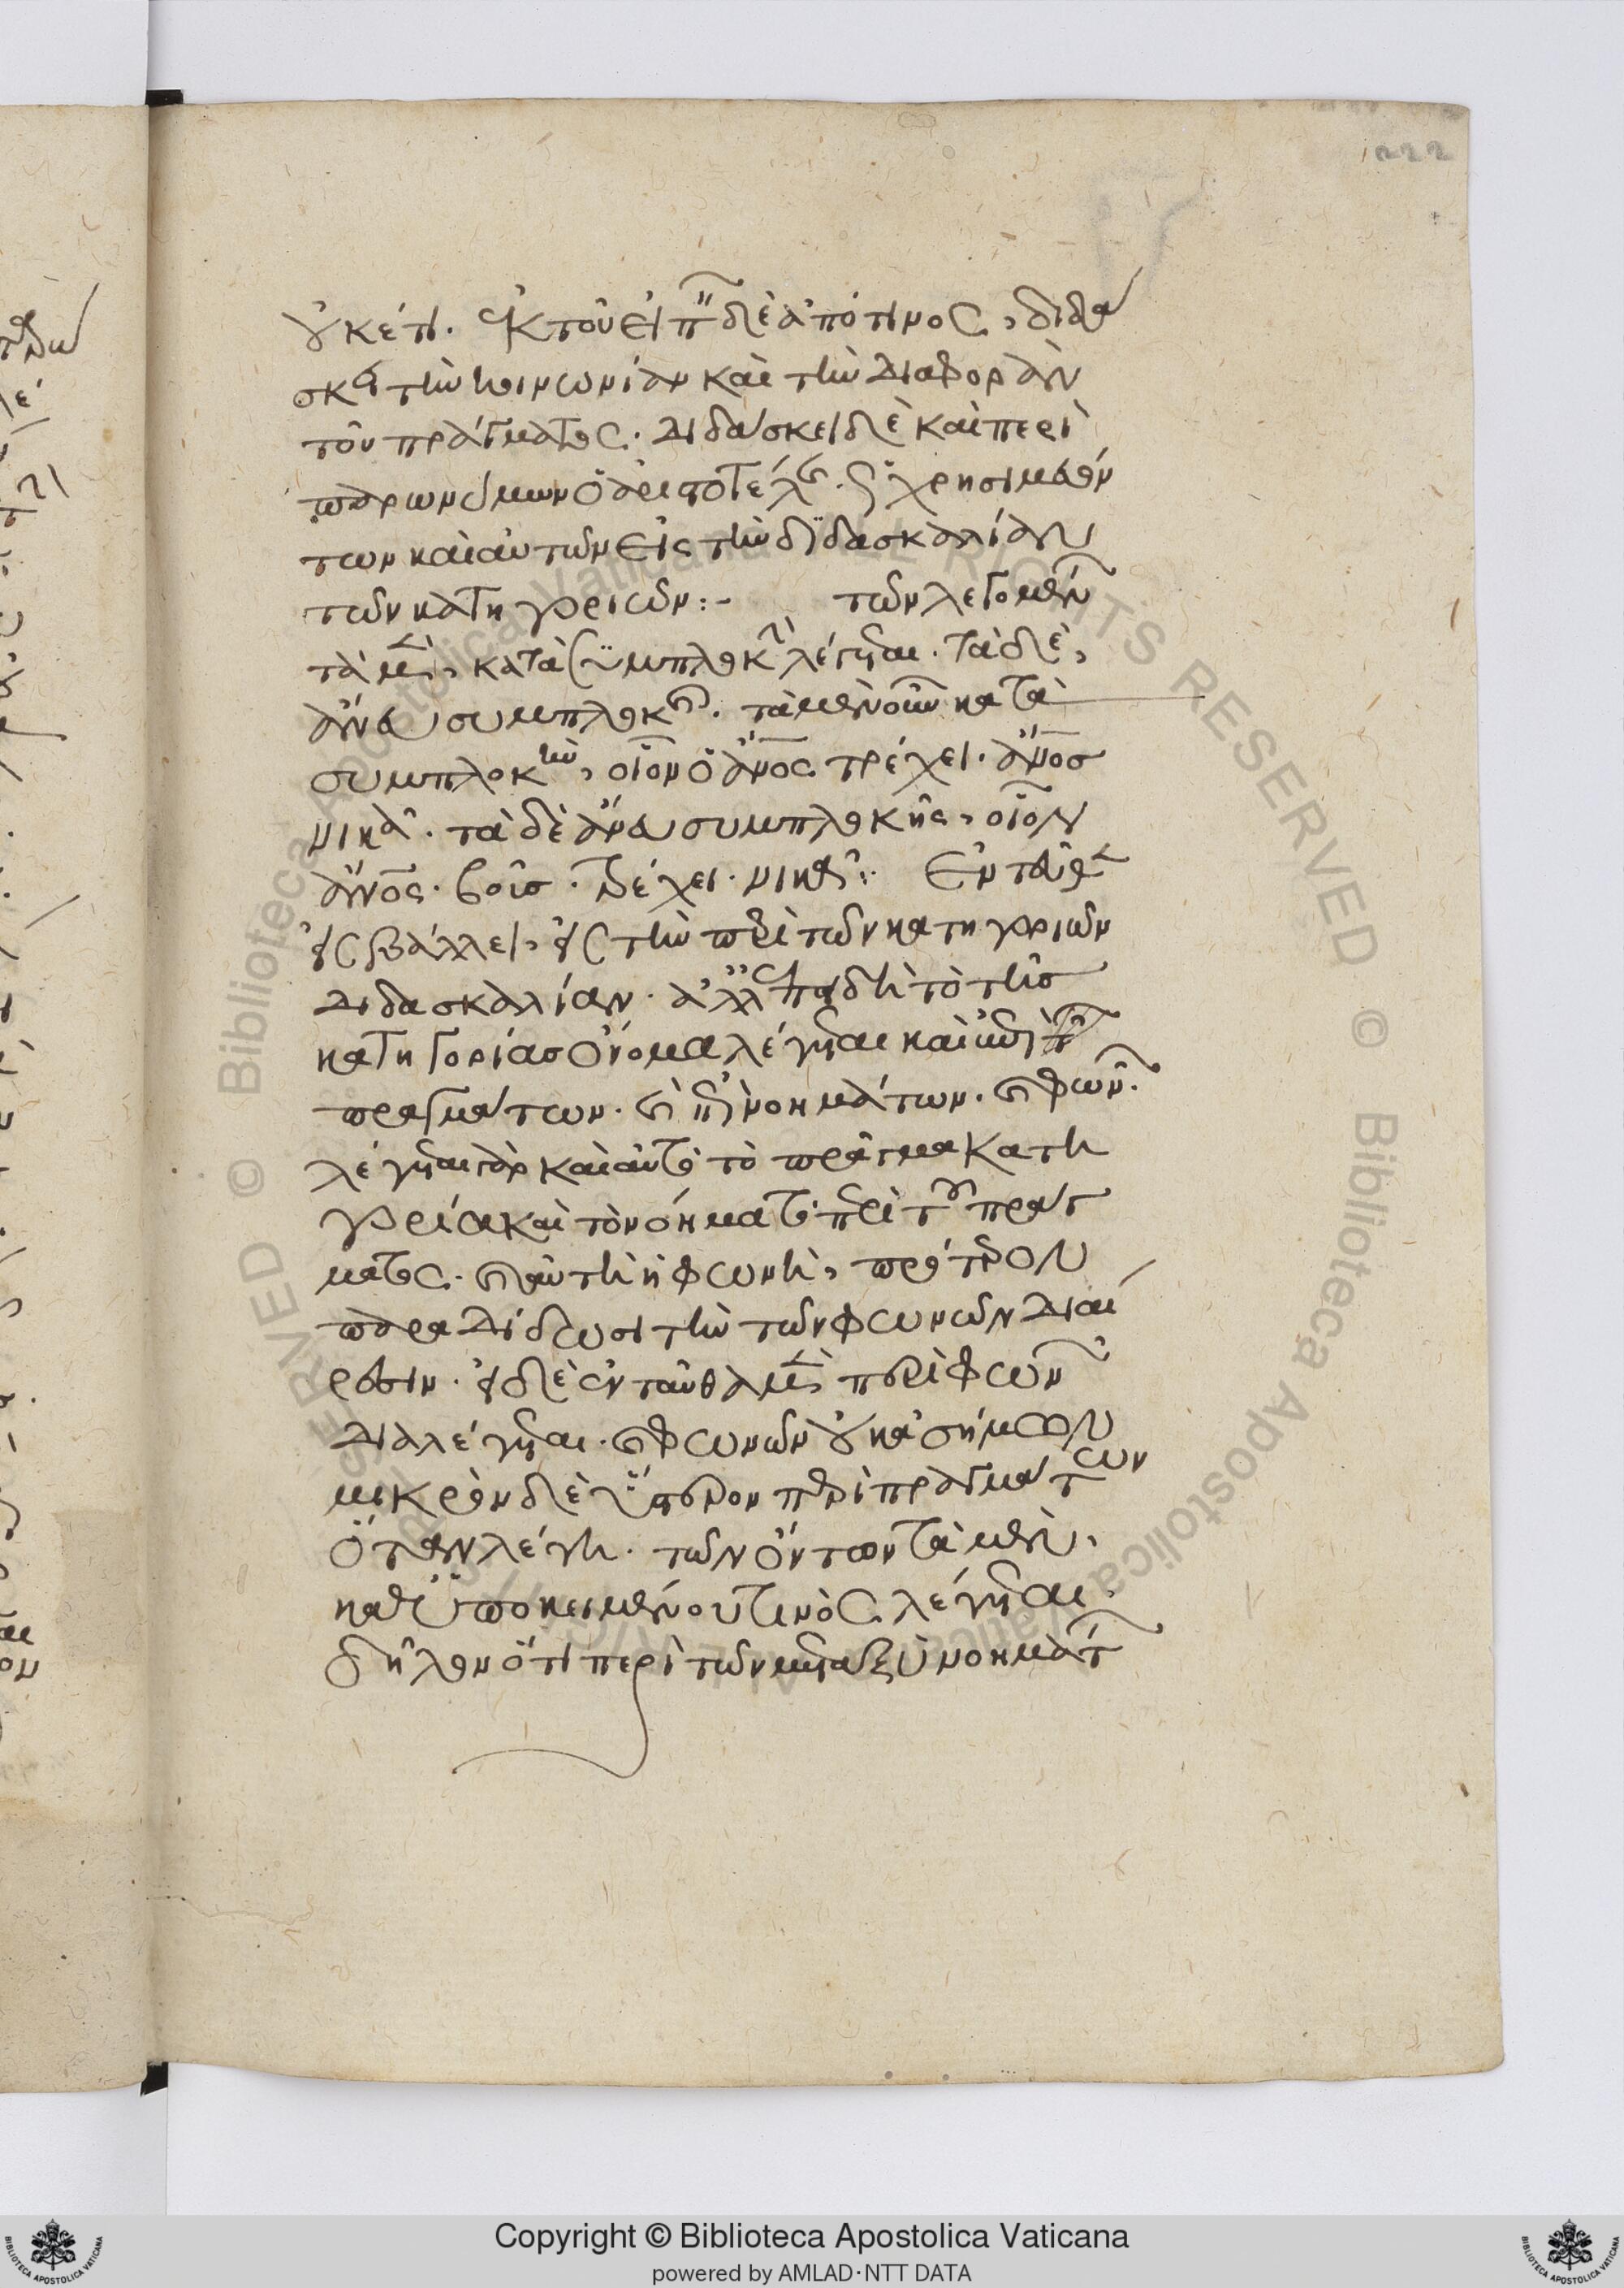 222
οὐκέτι. ἐκ τοῦ εἰπεῖν δὲ ἀπό τινος, διδά
σκει τὴν κοινωνίαν καὶ τὴν διαφορὰν
τοῦ πράγματος. διδάσκει δὲ καὶ περὶ
παρωνύμων ὁ ἀριστοτέλης. ὡς χρησιμευόν
των καὶ αὐτῶν εἰς τὴν διδασκαλίαν
τῶν κατηγοριῶν:- τῶν λεγομένων
τὰ μὲν, κατὰ συμπλοκὴν λέγεται. τὰ δὲ,
ἄνευ συμπλοκῆς. τὰ μὲν οὖν κατὰ
συμπλοκὴν, οἷον ὁ ἄνος τρέχει. ἄνος
νικᾶ. τὰ δὲ ἄνευ συμπλοκῆς, οἷον
ἄνος. βοῦς. τρέχει. νικᾶ: Ἐνταῦθα
εἰσβάλλει, εἰς τὴν περὶ τῶν κατηγοριῶν
διδασκαλίαν. ἀλλ' ἐπειδὴ τὸ τῆς
κατηγορίας ὄνομα λέγεται καὶ ἐπὶ τῶν
πραγμάτων. καὶ ἐπὶ νοημάτων. καὶ φωνῶν.
λέγεται γὰρ καὶ αὐτὸ τὸ πρᾶγμα κατη
γορία καὶ τὸ νόημα τὸ περὶ τοῦ πράγ
ματος. καὶ αὐτὴ ἡ φωνὴ, πρότερον
παραδίδωσι τὴν τῶν φωνῶν διαί
ρεσιν. εἰ δὲ ἐνταῦθα μὲν περὶ φωνῶν
διαλέγεται. καὶ φωνῶν οὐκ ἀσήμων
μικρὸν δὲ ὕστερον περὶ πραγμάτων
ὅταν λέγη. τῶν ὄντων τὰ μὲν,
καθ' ὑποκειμένου τινὸς λέγεται.
δῆλον ὅτι περὶ τῶν μεταξὺ νοημάτων
Copyright © Biblioteca Apostolica Vaticana
powered by AMLAD·NTT DATA